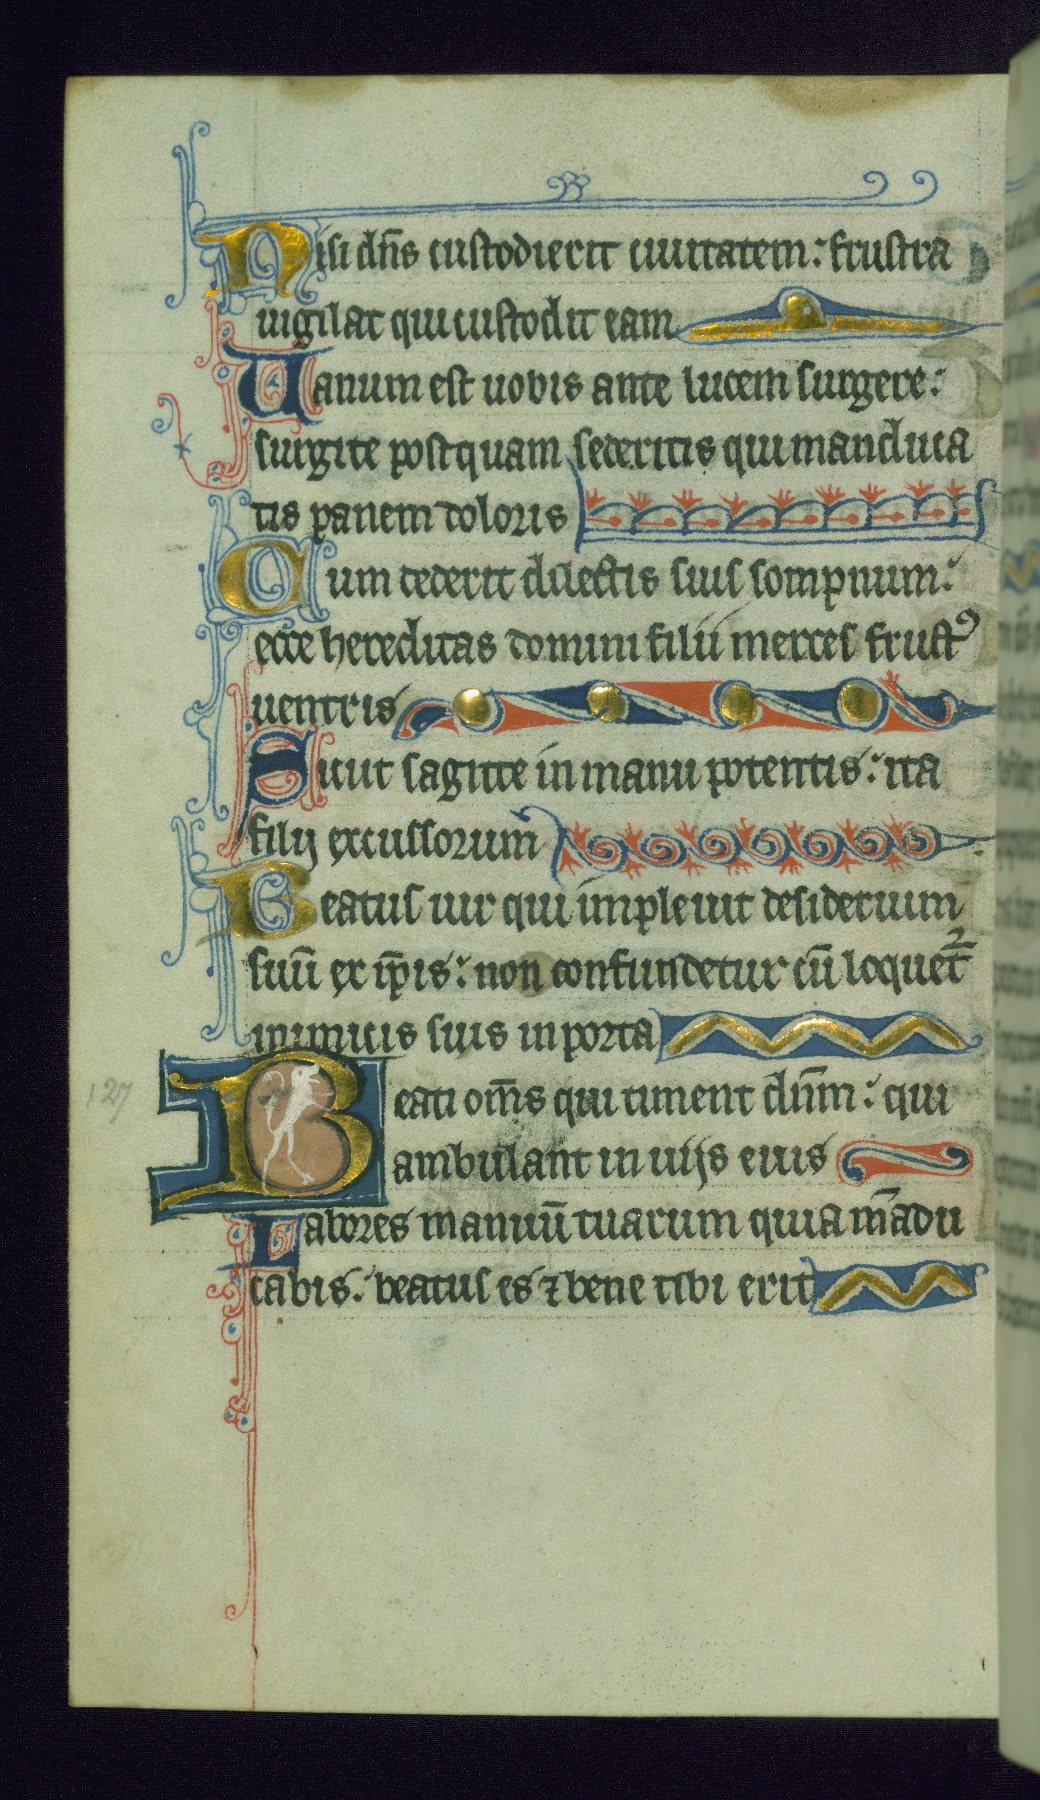 Nisi dn̄s custodierit ciuitatem: frustra
uigilat qui custodit eam
Uanum est uobis ante lucem surgere:
surgite postquam sederitis qui manduca
tis panem doloris
Cum dederit dilectis suis sompnum:
ecce hereditas domini filii merces fruct⁹
uentris
Sicut sagitte in manu potentis: ita
filij excussorum
Beatus uir qui impleuit desiderium
suū ex ip̄is: non confundetur cū loquet᷑
inimicis suis in porta
127
Beati om̄s qui timent dn̄m: qui
ambulant in uijs eius
Labores manuū tuarum quia mādu
cabis: beatus es ⁊ bene tibi erit